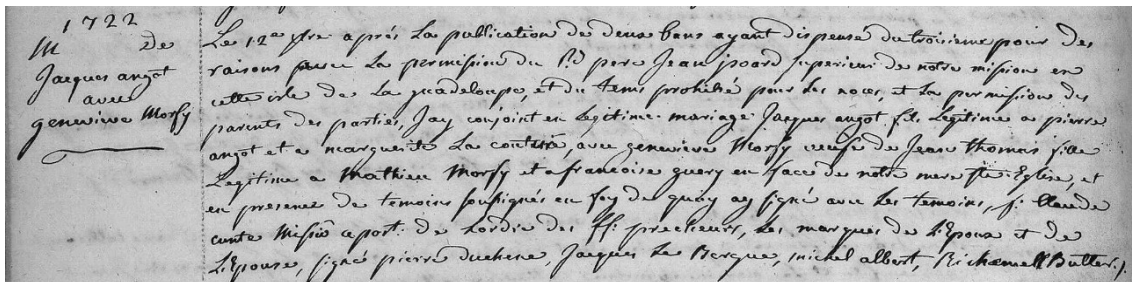 1722
M de
Jacques angot
avec
genevieve Morfy
Le 12e xbre aprés La publication de deux bans ayant dispensé du troisieme pour des
raisons avec La permission du Rd pere Jean joard superieur de notre mission en
cette isle de La guadeloupe, et du tems prohibé pour Les noces, et La permission des
parents des parties, Jay conjoint en Legitime mariage Jacques angot fils Legitime a pierre
angot et a marguerite La avec genevieve Morfy veufe de Jean Thomas fille
Legitime a Mathieu Morfy et a francoise guery en face de notre mere ste Eglise, et
en presence de temoins sousignés en foy de quoy ay signé avec Les temoins, f. Claude
cunte Missre apost. de Lordre des ff. precheurs, Les marques de L'Epoux et de
L'Epouse, signé pierre duchene, Jacques Le Bergue, michel albert, Butler